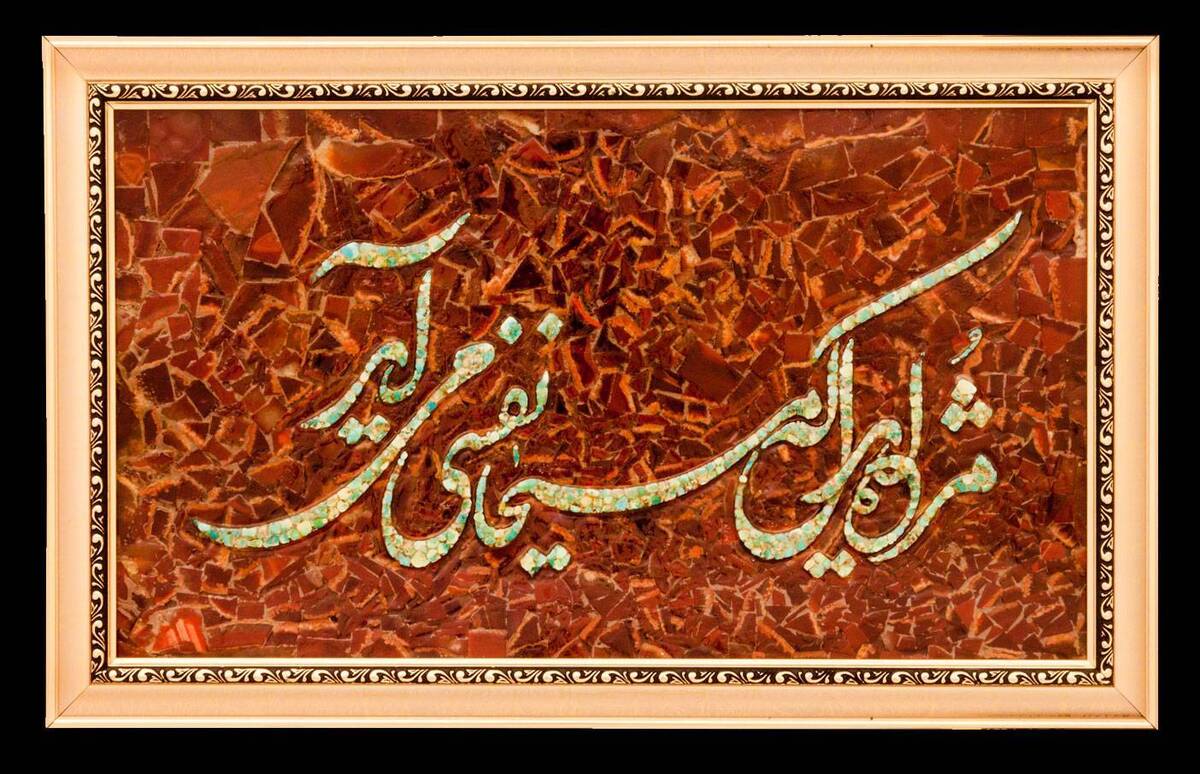 مژده ای دل که مسیحا نفسی می آید